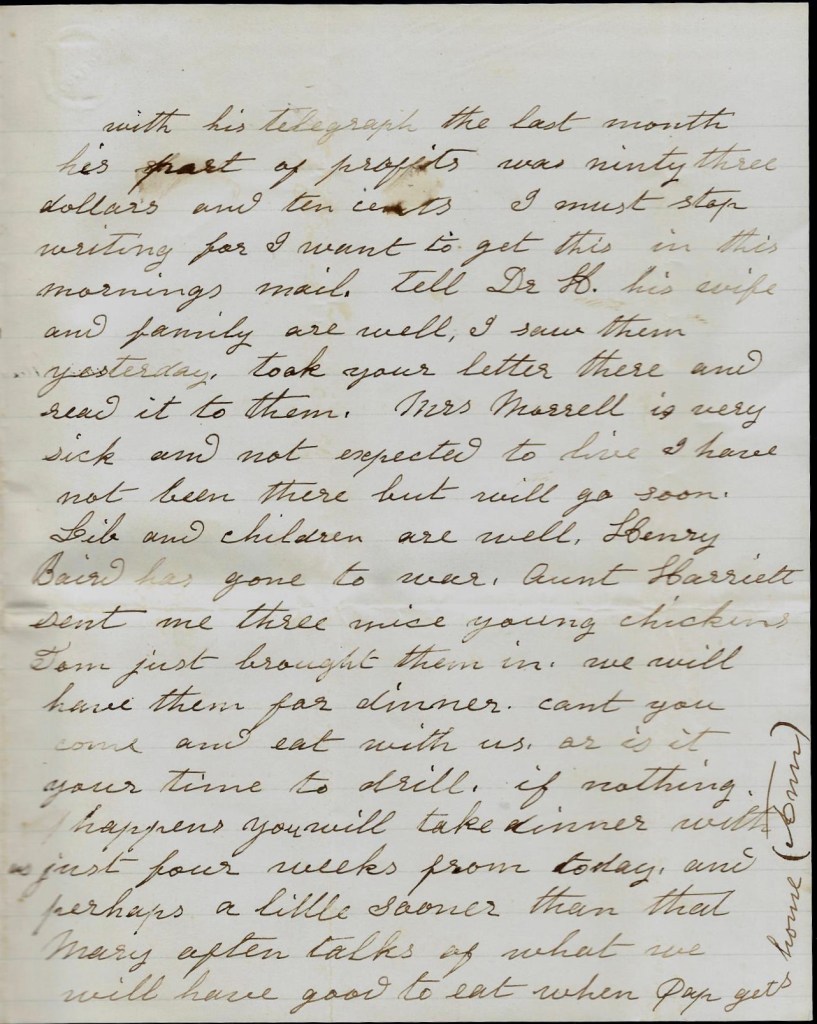 with his telegraph the last month
his part of profits was ninty three
dollars and ten cents I must stop
writing for I want to get this in this
mornings mail. tell Dr H. his wife
and family are well, I saw them
yesterday. took your letter there and
read it to them. Mrs Morrell is very
sick and not expected to live I have
not been there but will go soon.
Lib and children are well, Henry
Baird has gone to war. Aunt Harriett
sent me three nice young chickens
Tom just brought them in. we will
have them for dinner. cant you
come and eat with us. or is it
your time to drill. if nothing
happens you will take dinner with
us just four weeks from today. and
perhaps a little sooner than that
Mary often talks of what we
will have good to eat when Pap gets
home (Ann)